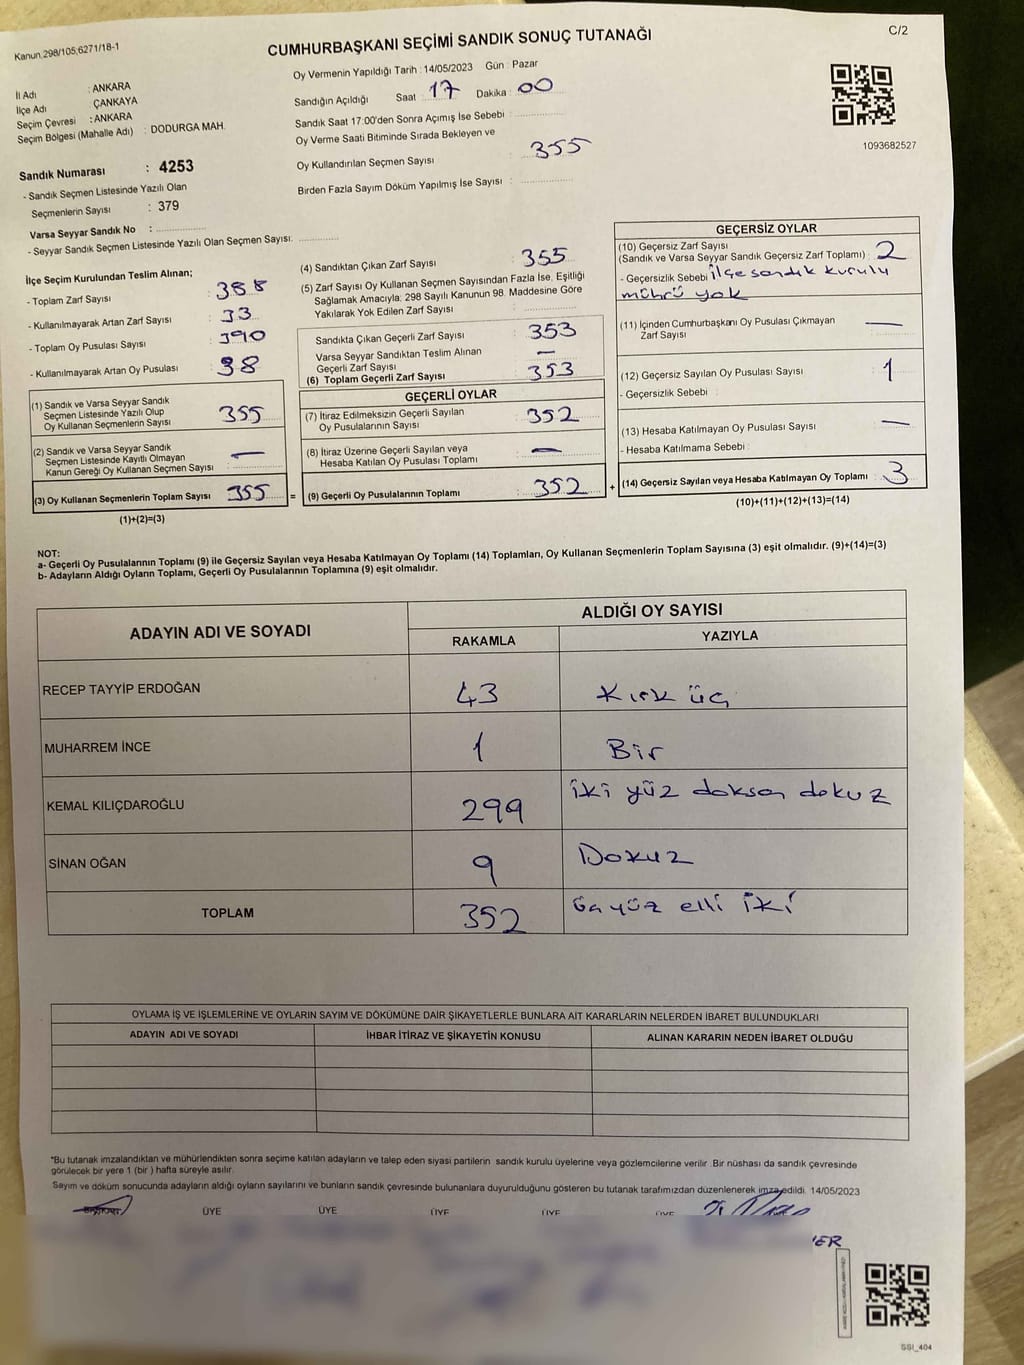 Kanun.298/105;6271/18-1
C/2
CUMHURBAŞKANI SEÇİMİ SANDIK SONUÇ TUTANAĞI
İl Adı : ANKARA
İlçe Adı ÇANKAYA
Seçim Çevresi : ANKARA
Seçim Bölgesi (Mahalle Adı) : DODURGA MAH.
Sandık Numarası : 4253
- Sandık Seçmen Listesinde Yazılı Olan
Seçmenlerin Sayısı : 379
Varsa Seyyar Sandık No :
- Seyyar Sandık Seçmen Listesinde Yazılı Olan Seçmen Sayısı:
Oy Vermenin Yapıldığı Tarih : 14/05/2023 Gün : Pazar
Sandığın Açıldığı Saat : 17 Dakika : 00
Sandık Saat 17:00'den Sonra Açımış İse Sebebi :
Oy Verme Saati Bitiminde Sırada Bekleyen ve
Oy Kullandırılan Seçmen Sayısı : 355
Birden Fazla Sayım Döküm Yapılmış İse Sayısı :
1093682527
İlçe Seçim Kurulundan Teslim Alınan;
- Toplam Zarf Sayısı : 388
- Kullanılmayarak Artan Zarf Sayısı : 33
- Toplam Oy Pusulası Sayısı : 390
- Kullanılmayarak Artan Oy Pusulası : 38
(1) Sandık ve Varsa Seyyar Sandık
Seçmen Listesinde Yazılı Olup
Oy Kullanan Seçmenlerin Sayısı : 355
(2) Sandık ve Varsa Seyyar Sandık
Seçmen Listesinde Kayıtlı Olmayan
Kanun Gereği Oy Kullanan Seçmen Sayısı : —
(3) Oy Kullanan Seçmenlerin Toplam Sayısı : 355
(1)+(2)=(3)
(4) Sandıktan Çıkan Zarf Sayısı : 355
(5) Zarf Sayısı Oy Kullanan Seçmen Sayısından Fazla İse, Eşitliği
Sağlamak Amacıyla; 298 Sayılı Kanunun 98. Maddesine Göre
Yakılarak Yok Edilen Zarf Sayısı :
Sandıkta Çıkan Geçerli Zarf Sayısı : 353
Varsa Seyyar Sandıktan Teslim Alınan
Geçerli Zarf Sayısı : —
(6) Toplam Geçerli Zarf Sayısı : 353
GEÇERLİ OYLAR
(7) İtiraz Edilmeksizin Geçerli Sayılan
Oy Pusulalarının Sayısı : 352
(8) İtiraz Üzerine Geçerli Sayılan veya
Hesaba Katılan Oy Pusulası Toplamı : —
= (9) Geçerli Oy Pusulalarının Toplamı : 352
GEÇERSİZ OYLAR
(10) Geçersiz Zarf Sayısı
(Sandık ve Varsa Seyyar Sandık Geçersiz Zarf Toplamı) : 2
- Geçersizlik Sebebi : ilçe sandık kurulu
mührü yok
(11) İçinden Cumhurbaşkanı Oy Pusulası Çıkmayan
Zarf Sayısı : —
(12) Geçersiz Sayılan Oy Pusulası Sayısı : 1
- Geçersizlik Sebebi :
(13) Hesaba Katılmayan Oy Pusulası Sayısı : —
- Hesaba Katılmama Sebebi :
+ (14) Geçersiz Sayılan veya Hesaba Katılmayan Oy Toplamı : 3
(10)+(11)+(12)+(13)=(14)
NOT:
a- Geçerli Oy Pusulalarının Toplamı (9) ile Geçersiz Sayılan veya Hesaba Katılmayan Oy Toplamı (14) Toplamları, Oy Kullanan Seçmenlerin Toplam Sayısına (3) eşit olmalıdır. (9)+(14)=(3)
b- Adayların Aldığı Oyların Toplamı, Geçerli Oy Pusulalarının Toplamına (9) eşit olmalıdır.
ADAYIN ADI VE SOYADI
ALDIĞI OY SAYISI
RAKAMLA YAZIYLA
RECEP TAYYİP ERDOĞAN 43 Kırk üç
MUHARREM İNCE 1 Bir
KEMAL KILIÇDAROĞLU 299 iki yüz doksan dokuz
SİNAN OĞAN 9 Dokuz
TOPLAM 352 üç yüz elli iki
OYLAMA İŞ VE İŞLEMLERİNE VE OYLARIN SAYIM VE DÖKÜMÜNE DAİR ŞİKAYETLERLE BUNLARA AİT KARARLARIN NELERDEN İBARET BULUNDUKLARI
ADAYIN ADI VE SOYADI İHBAR İTİRAZ VE ŞİKAYETİN KONUSU ALINAN KARARIN NEDEN İBARET OLDUĞU
*Bu tutanak imzalandıktan ve mühürlendikten sonra seçime katılan adayların ve talep eden siyasi partilerin sandık kurulu üyelerine veya gözlemcilerine verilir. Bir nüshası da sandık çevresinde
görülecek bir yere 1 (bir) hafta süreyle asılır.
Sayım ve döküm sonucunda adayların aldığı oyların sayılarını ve bunların sandık çevresinde bulunanlara duyurulduğunu gösteren bu tutanak tarafımızdan düzenlenerek imza edildi. 14/05/2023
ÜYE ÜYE ÜYE ÜYE ÜYE
SSI_404